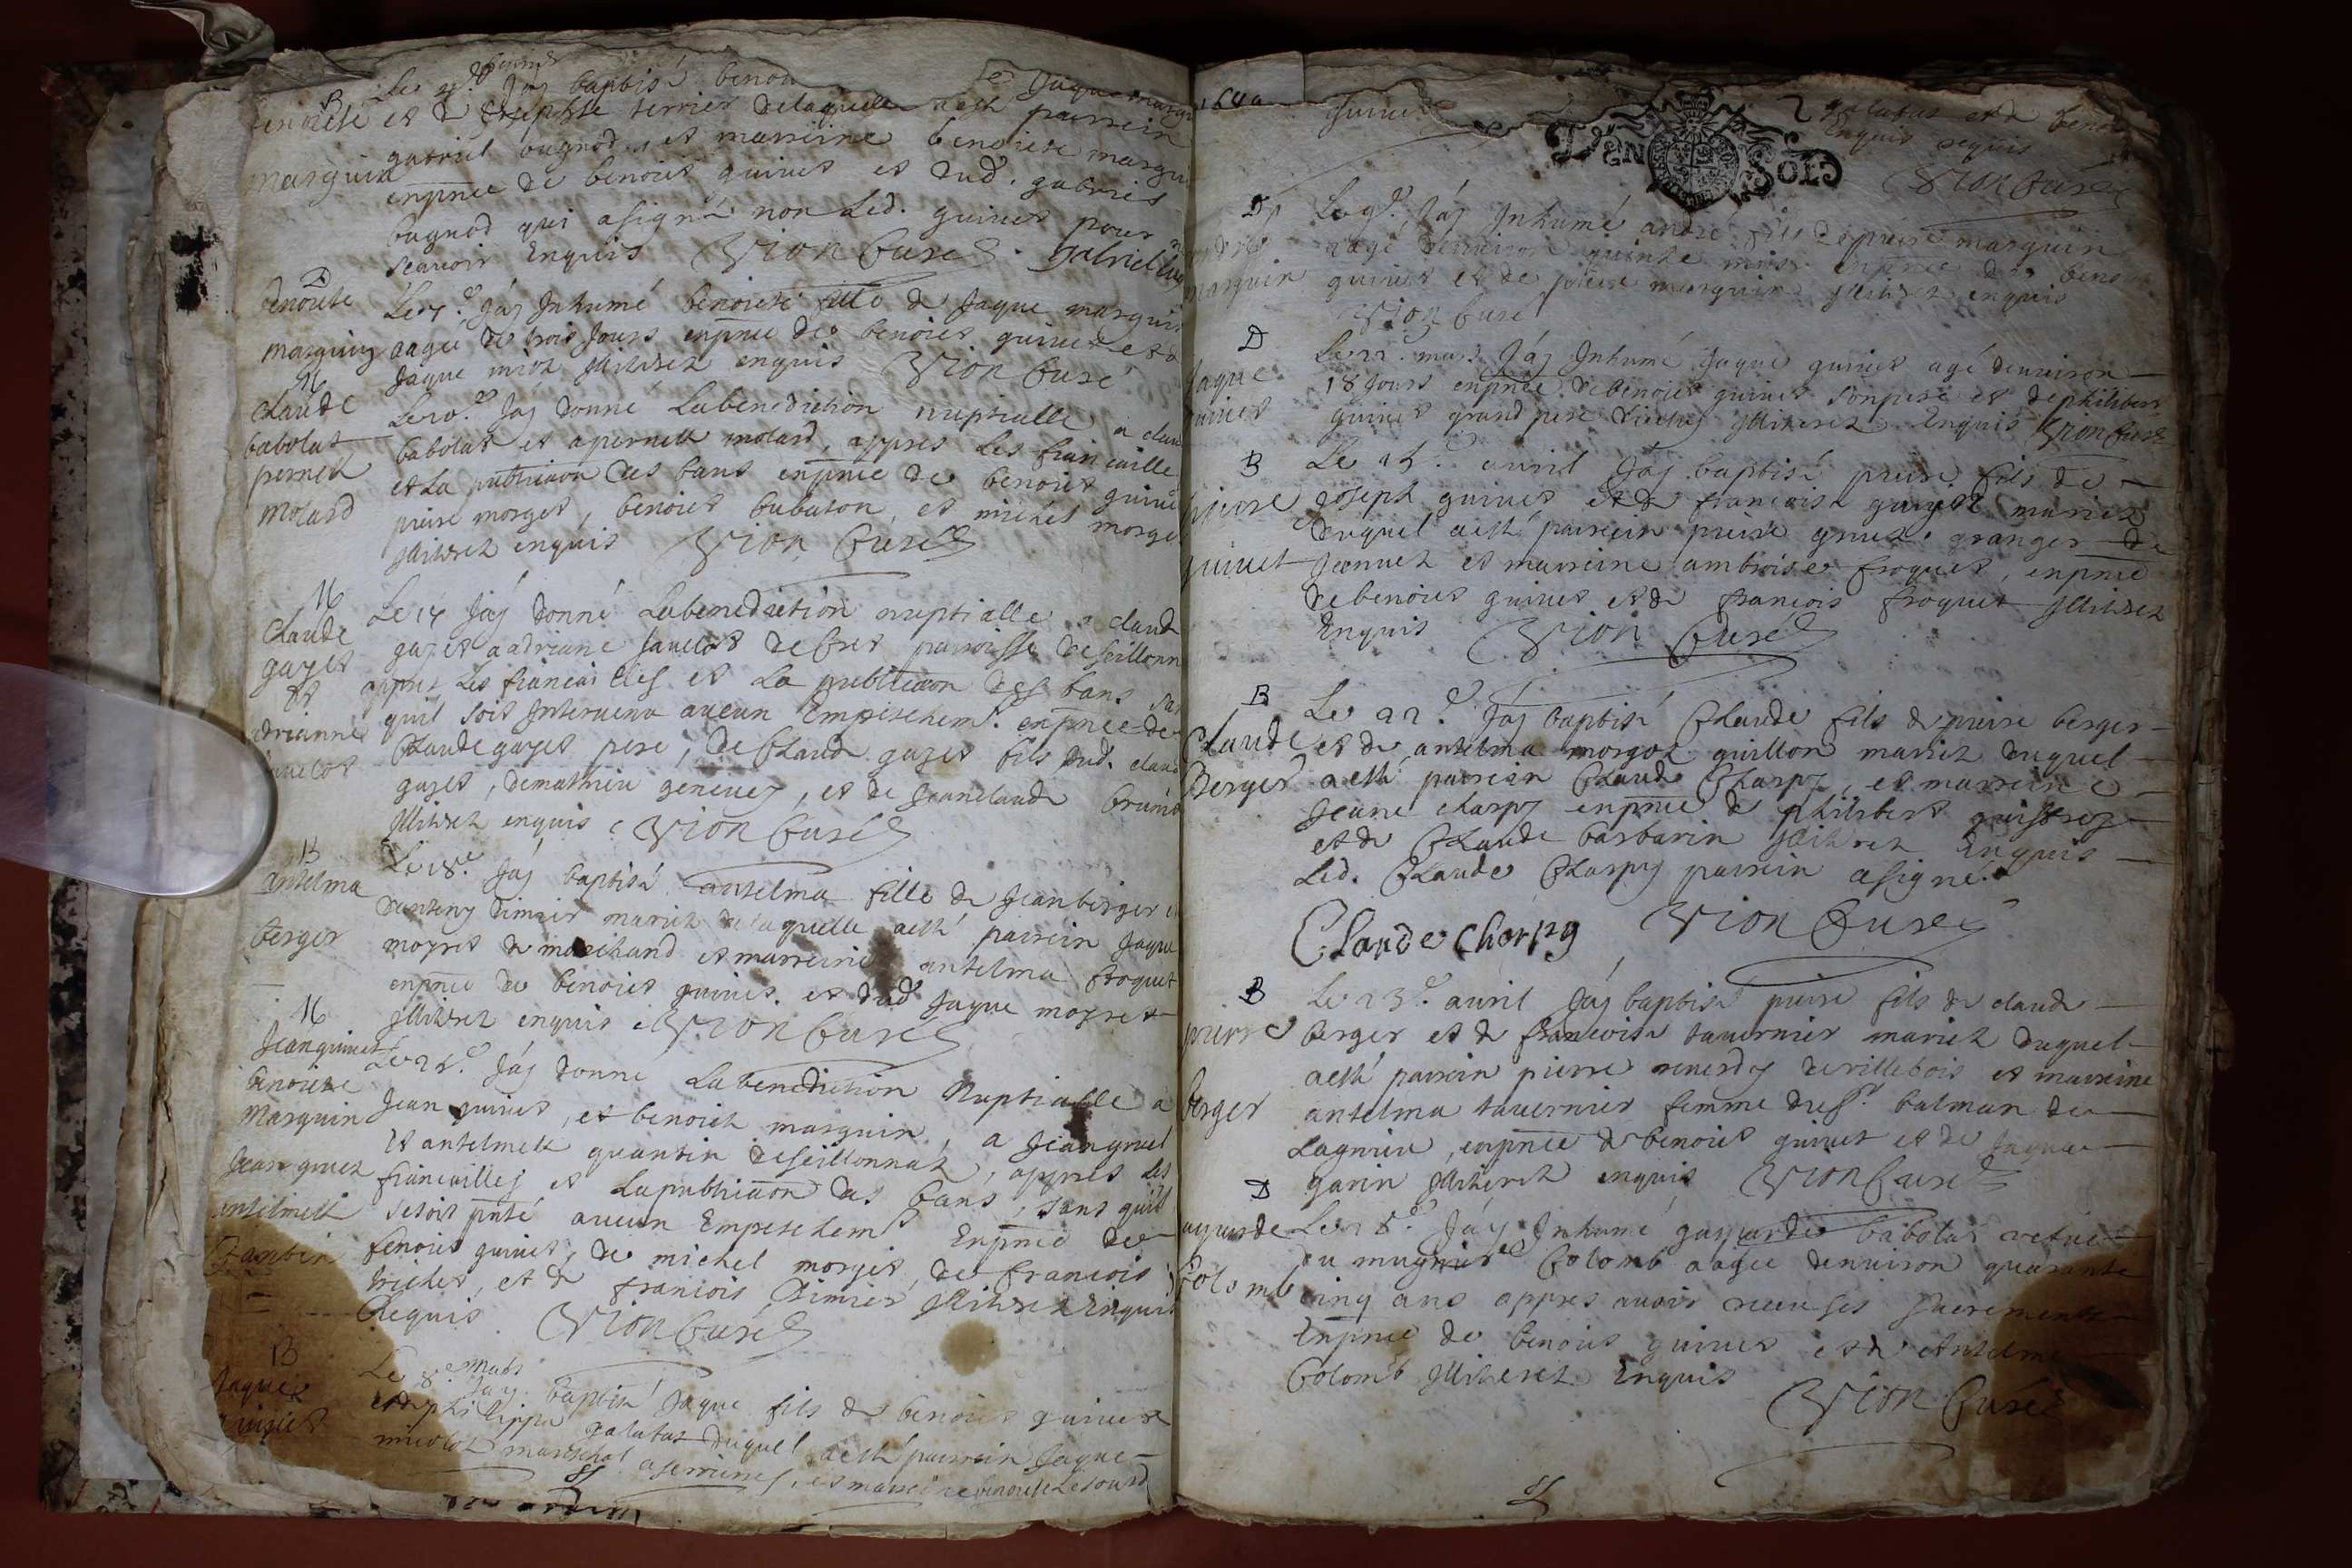 B
benoiete
marguin
Jáy baptisé benoi
Jaque margu
et de terrier de laquelle a esté parrein
gabriel bugnod, et marreine benoiete margu
enpnce de benoiet guinet et dud. gabriel
bugnod qui a signé non led. guinet pour
scauoir Enquis Vion Curé gabriel bug
D
benoiete
marguin
Le 7.e Jáy Inhumé benoiete fille de Jaque marguin
aagée de trois Jours enpnce de benoiet guinet et de
Jaque miot illiterez enquis Vion Curé
M
Claude
babolat
pernette
molard
Le 10.e Jáy donné La benediction nuptialle a clau
babolat et a pernette molard, appres Les fiancaille
et La publicaon des bans enpnce de benoiet guinet
pierre morget, benoiet babaton, et michel morge
illiterez enquis Vion Curé
M
Claude
gazet
et
adrianne
Jauelot
Le 14 Jáy donné La benediction nuptialle a claude
gazet a adriane Jauelot de Cret parroisse de seillonn
appres Les fiancailles et La publicaon des bans sans
quil soit Interuenu aucun Empeschemt. enpnce de
Claude gazet pere, de Claude gazet fils dud. claude
gazet, de mathieu geneuey, et de Jeanclaude brunet
illiterez enquis Vion Curé
B
antelma
berger
Le 18.e Jáy baptisé antelma fille de Jean berger et
dimier mariez de laquelle a esté parrein Jaque
moyret de marchand et marreine antelma froquet
enpnce de benoiet guinet et dud. Jaque moyret
illiterez enquis Vion Curé
M
Jean guinet
benoiete
Marguin
Jean gruet
antelmette
quantin
Le 25.e Jáy donné La benediction Nuptialle a
Jean guinet, et benoiete marguin, a Jean gruet
et antelmette quantin de seillonnaz, appres les
fiancailles et La publicaon des bans, sans quil
se soit pnté aucun Empeschemt Enpnce de
benoiet guinet, de michel morget, de francois
trichet, et de francois Dimier illiterez Enquis
Requis Vion Curé
B
Jaque
guinet
Le 8.e mars Jáy baptisé Jaque fils de benoiet guinet
et de philippa palatas duquel a esté parrein Jaque
miolot mareschal a serrieres, et marreine benoiete Lesourd
guinet
2 palatas et de benoi
Enquis requis
Vion Curé
DEVX SOLS
D
andré
marguin
Le 9.e Jáy Inhumé andré fils de pierre marguin
aagé denuiron quinze mois enpnce de benoiet
guinet et de pierre marguin illiterez enquis
Vion Curé
D
Jaque
guinet
Le 22.e mars Jáy Inhumé Jaque guinet agé denuiron
18 Jours enpnce de benoiet guinet son pere et de philibert
guinet grand pere dicelluy illiterez Enquis Vion Curé
B
pierre
guinet
Le 15.e auril Jáy baptisé pierre fils de
Joseph guinet et de francoise guigoz mariez
duquel a esté parrein pierre gruet granger de
Jannet et marreine ambroise froquet, enpnce
de benoiet guinet et de francois froquet illiterez
Enquis Vion Curé
B
Claude
Berger
Le 22.e Jáy baptisé Claude fils de pierre berger
et de antelma morgoz guillon mariez duquel
a esté parrein Claude Charpy, et marreine
Jeane charpy enpnce de philibert guistrey
et de Claude barbarin illiterez Enquis
Led. Claude Charpy parrein a signé.
Claude Charpy Vion Curé
B
pierre
berger
Le 23.e auril Jáy baptisé pierre fils de claude
berger et de francoise tauernier mariez duquel
a esté parrein pierre reuerdy de villebois et marreine
antelma tauernier femme du sr. balman de
Lagnieu, enpnce de benoiet guinet et de Jaque
garin illiterez enquis Vion Curé
D
gasparde
Colomb
Le 28.e Jáy Inhumé gasparde babolat vefue
du mugnier Colomb aagée denuiron quarante
cinq ans appres auoir receu ses sacrements
Enpnce de benoiet guinet et de Antelme
Colomb illiterez Enquis
Vion Curé